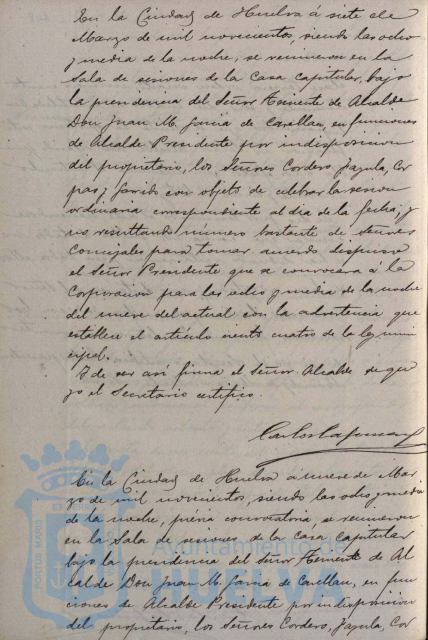 En la Ciudad de Huelva á siete de
Marzo de mil novecientos, siendo las ocho
y media de la noche, se reunieron en la
Sala de sesiones de la Casa Capitular, bajo
la presidencia del Señor Teniente de Alcalde
Don Juan M. García de Casellan, en funciones
de Alcalde Presidente por indisposicion
del propietario, los Señores Cordero, Jazula, Cor
pas y Garrido con objeto de celebrar la sesion
ordinaria correspondiente al dia de la fecha; y
no resultando número bastante de Señores
Concejales para tomar acuerdo dispuso
el Señor Presidente que se convocara á la
Corporacion para las ocho y media de la noche
del nueve del actual con la advertencia que
establece el artículo ciento cuatro de la ley muni
cipal.
Y de ser asi firma el Señor Alcalde de que
yo el Secretario certifico.
Carlos
En la Ciudad de Huelva á nueve de Mar
zo de mil novecientos, siendo las ocho y media
de la noche, prévia convocatoria, se reunieron
en la Sala de sesiones de la Casa Capitular
bajo la presidencia del Señor Teniente de Al
calde Don Juan M. García de Casellan, en fun
ciones de Alcalde Presidente por indisposicion
del propietario, los Señores Cordero, Jazula, Cor
Ayuntamiento de
HUELVA
PORTUS MARIS